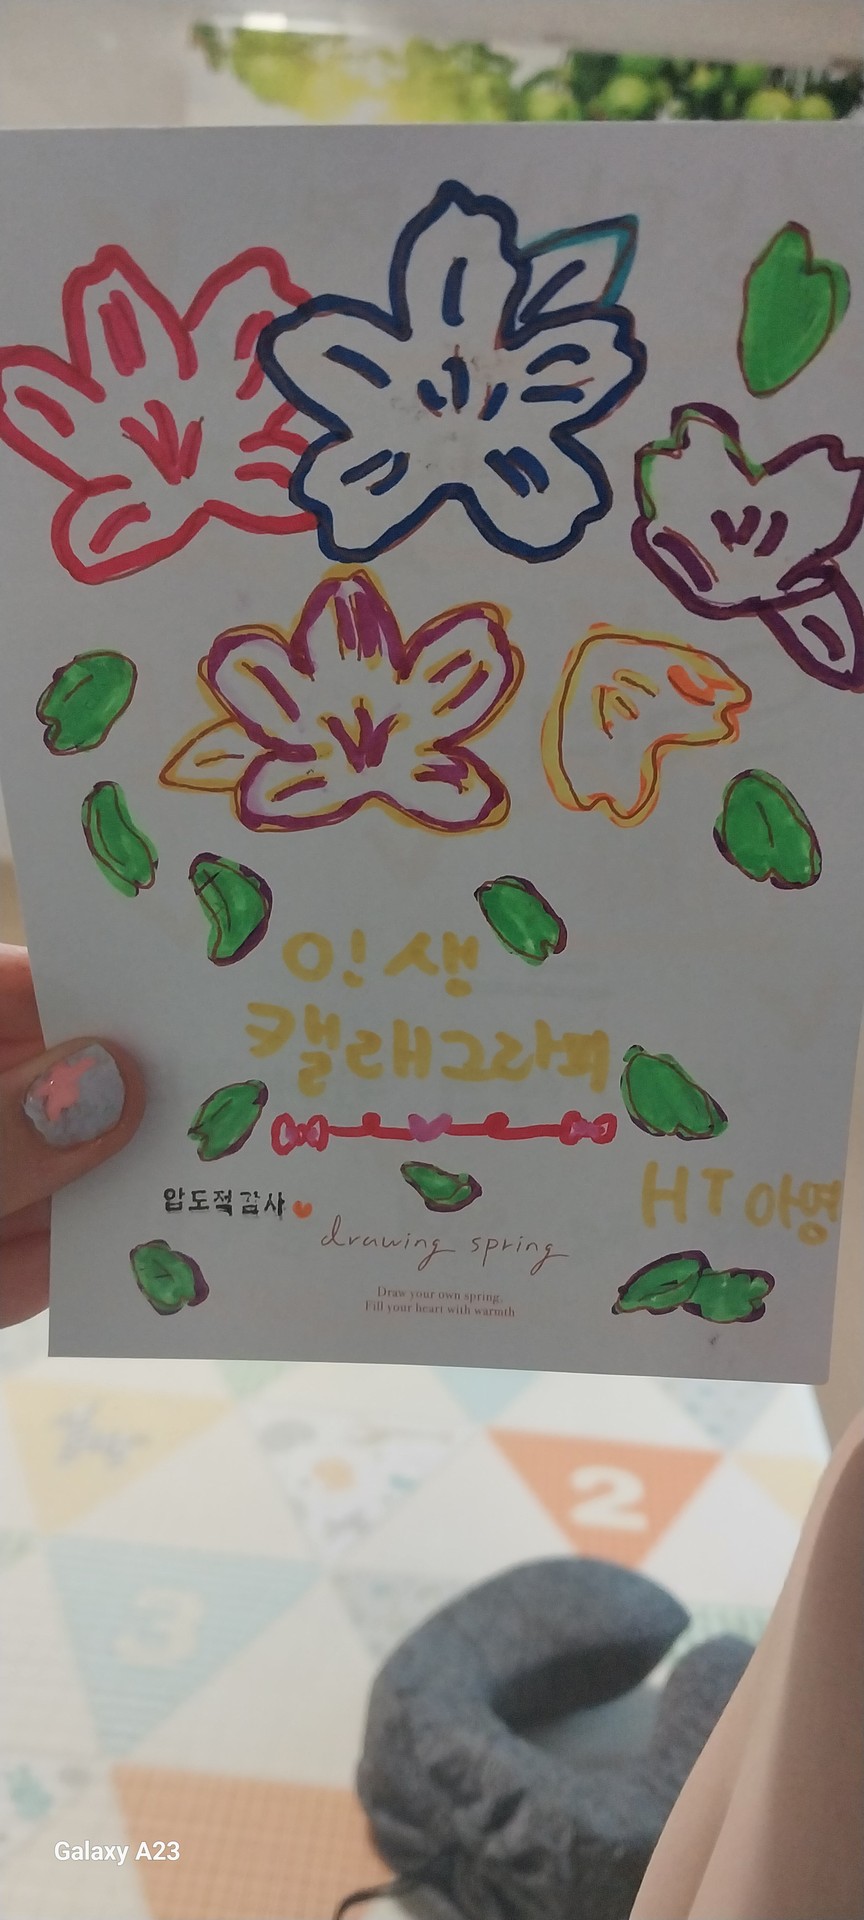 인생
캘래그라피
HT 아영
압도적감사
drawing spring
Draw your own spring.
Fill your heart with warmth
2
3
Galaxy A23